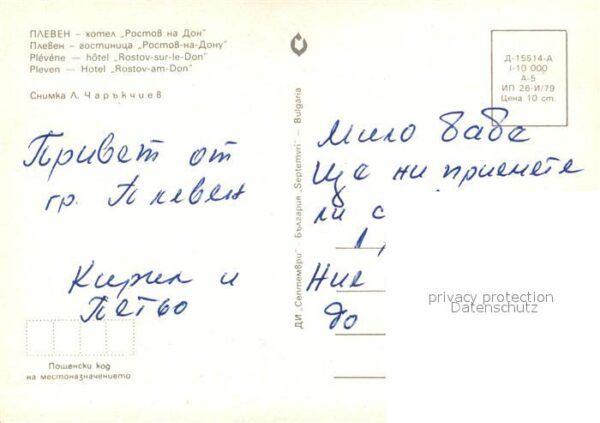 ПЛЕВЕН – хотел „Ростов на Дон"
Плевен – гостиница „Ростов-на-Дону"
Plévéne — hôtel „Rostov-sur-le-Don"
Pleven — Hotel „Rostov-am-Don"
Снимка Л. Чаръкчиев
Привет от
гр. Плевен
Кирил и
Петьо
Пощенски код
на местоназначението
ДИ „Септември" · България „Septemvri" — Bulgaria
Д-15514-А
I-10 000
А-5
ИП 26-И/79
Цена 10 ст.
Мило баба
Ще ни приемете
ли с
Ние
до
privacy protection
Datenschutz